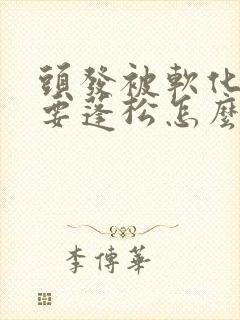 頭發被軟化
要蓬松怎麼
李傳華